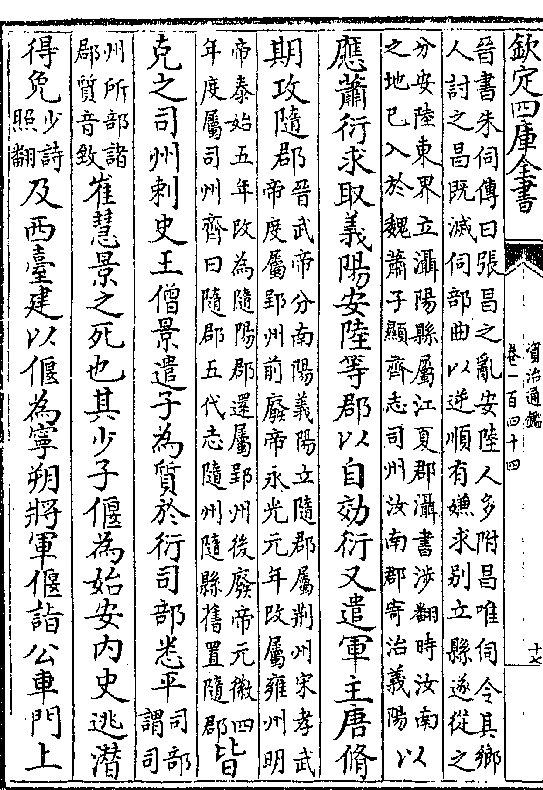 欽定四庫全書
資治通鑑
卷一百四十四
十七
晉書朱伺傳曰張昌之亂安陸人多附昌唯伺令其鄉
人討之昌既滅伺部曲以逆順有嫌求别立縣遂從之
分安陸東界立灄陽縣屬江夏郡灄書涉翻時汝南
之地已入於魏蕭子顯齊志司州汝南郡寄治義陽
以
應蕭衍求取義陽安陸等郡以自効衍又遣軍主唐脩
期攻隨郡
晉武帝分南陽義陽立隨郡屬荆州宋孝武
帝度屬郢州前廢帝永光元年改屬雍州明
帝泰始五年改為隨陽郡還屬郢州後廢帝元徽四
年度屬司州齊曰隨郡五代志隨州隨縣舊置隨郡
皆
克之司州刺史王僧景遣子為質於衍司部悉平
司部
謂司
州所部諸
郡質音致
崔慧景之死也其少子偃為始安內史逃潛
得免
少詩
照翻
及西臺建以偃為寧朔將軍偃詣公車門上